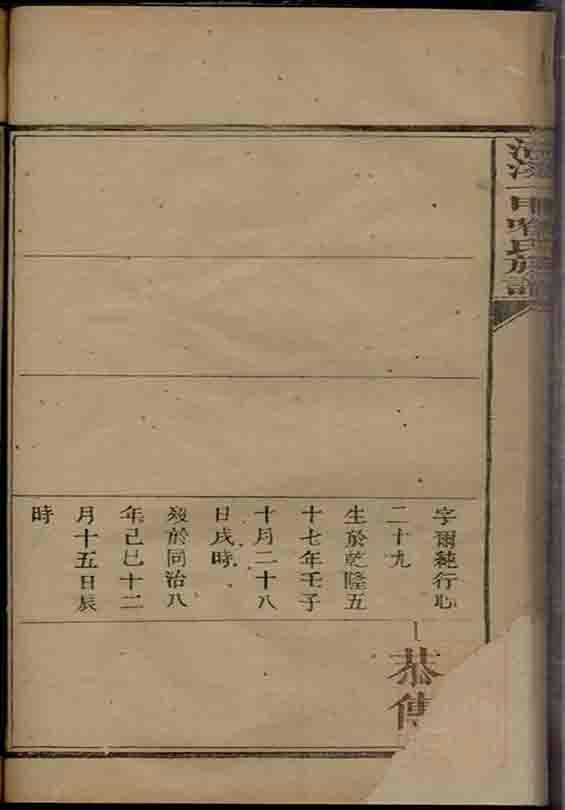 甲喻氏族譜
字爾純行心
二十九
生於乾隆五
十七年壬子
十月二十八
日戌時
歿於同治八
年己巳十二
月十五日辰
時
恭傳